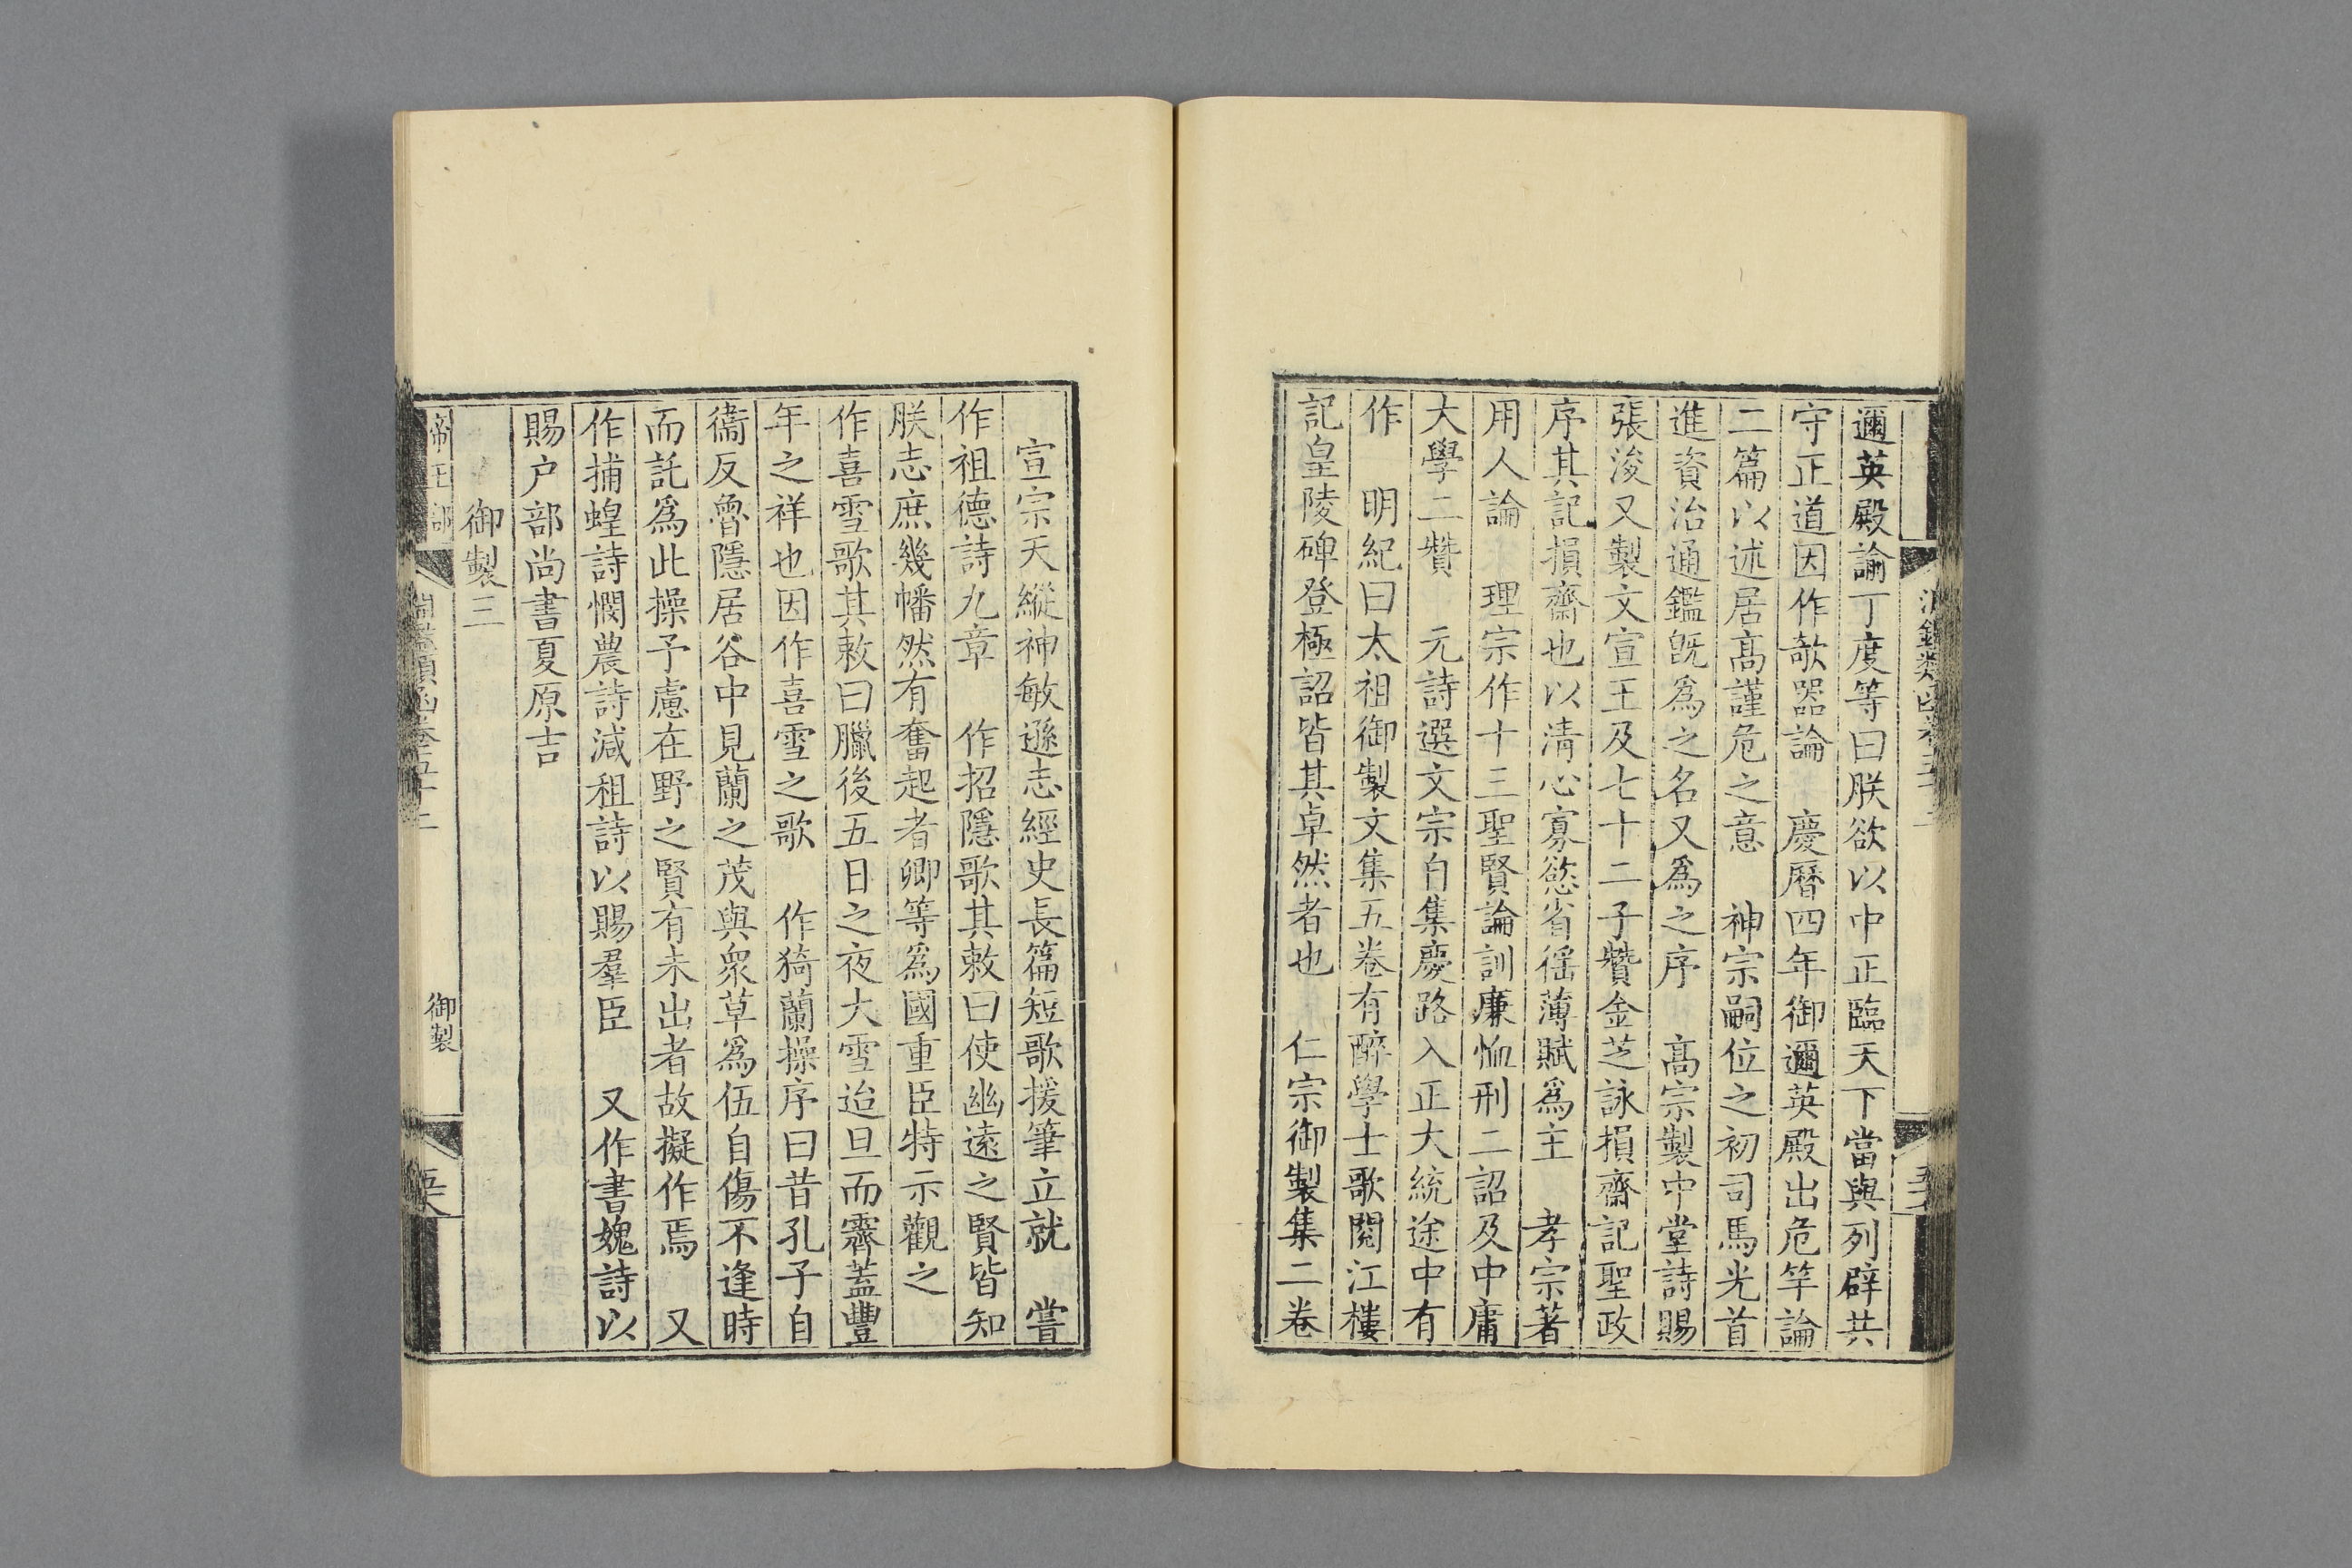 邇英殿諭丁度等曰朕欲以中正臨天下當與列辟共
守正道因作欹器論　慶曆四年御邇英殿出危竿論
二篇以述居髙謹危之意　神宗嗣位之初司馬光首
進資治通鑑旣爲之名又爲之序　髙宗製中堂詩賜
張浚又製文宣王及七十二子贊金芝詠損齋記聖政
序其記損齋也以清心寡慾省徭薄賦爲主　孝宗著
用人論　理宗作十三聖賢論訓廉恤刑二詔及中庸
大學二贊　元詩選文宗自集慶路入正大統途中有
作　明紀曰太祖御製文集五卷有醉學士歌閱江樓
記皇陵碑登極詔皆其卓然者也　仁宗御製集二卷
宣宗天縱神敏遜志經史長篇短歌援筆立就　嘗
作祖德詩九章　作招隱歌其敕曰使幽遠之賢皆知
朕志庶幾幡然有奮起者卿等爲國重臣特示觀之
作喜雪歌其敕曰臘後五日之夜大雪迨旦而霽蓋豐
年之祥也因作喜雪之歌　作猗蘭操序曰昔孔子自
衞反魯隱居谷中見蘭之茂與衆草爲伍自傷不逢時
而託爲此操予慮在野之賢有未出者故擬作焉　又
作捕蝗詩憫農詩減租詩以賜羣臣　又作書媿詩以
賜户部尚書夏原吉
御製三
帝王部
御製